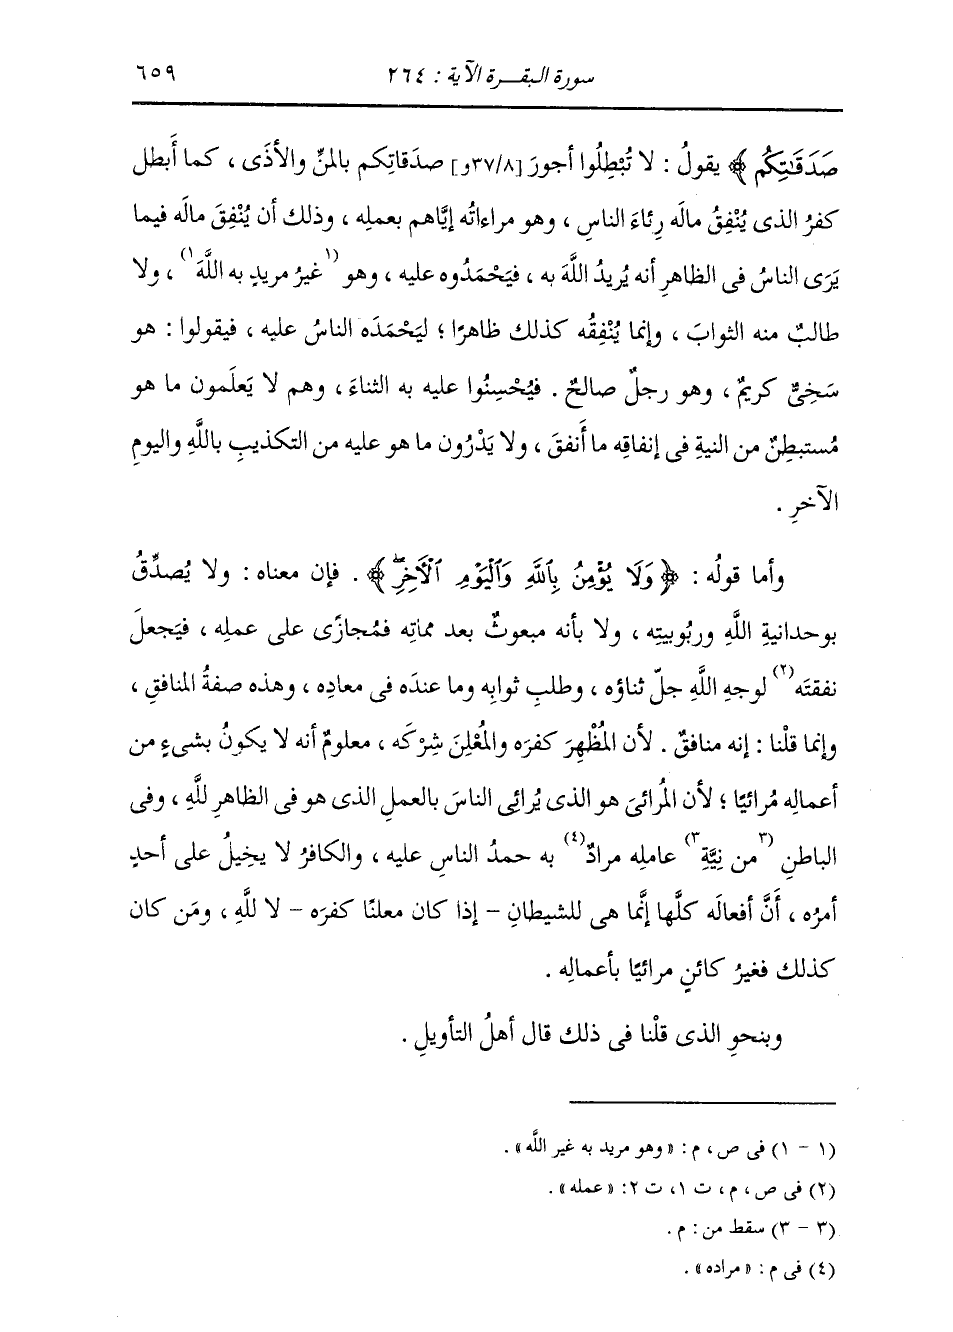 سورة البقـــرة الآية : ٢٦٤ ٦٥٩
صَدَقَٰتِكُم ﴾ يقولُ : لا تُبْطِلُوا أجورَ [٣٧/٨و] صدَقاتِكم بالمنِّ والأذَى ، كما أَبطل
كفرُ الذى يُنْفِقُ مالَه رِئاءَ الناسِ ، وهو مراءاتُه إيَّاهم بعملِه ، وذلك أن يُنْفِقَ مالَه فيما
يَرَى الناسُ فى الظاهرِ أنه يُريدُ اللَّهَ به ، فيَحْمَدُوه عليه ، وهو (١غيرُ مريدٍ به اللَّهَ١) ، ولا
طالبٌ منه الثوابَ ، وإنما يُنْفِقُه كذلك ظاهرًا ؛ ليَحْمَدَه الناسُ عليه ، فيقولوا : هو
سَخِىٌّ كريمٌ ، وهو رجلٌ صالحٌ . فيُحْسِنُوا عليه به الثناءَ ، وهم لا يَعلَمون ما هو
مُستبطِنٌ من النيةِ فى إنفاقِه ما أَنفقَ ، ولا يَدْرُون ما هو عليه من التكذيبِ باللَّهِ واليومِ
الآخرِ .
وأما قولُه : ﴿ وَلَا يُؤْمِنُ بِٱللَّهِ وَٱلْيَوْمِ ٱلْأَخِرِۖ ﴾ . فإن معناه : ولا يُصدِّقُ
بوحدانيةِ اللَّهِ وربُوبيتِه ، ولا بأنه مبعوثٌ بعد مماتِه فمُجازًى على عملِه ، فيَجعلَ
نفقتَه(٢) لوجهِ اللَّهِ جلّ ثناؤه ، وطلبِ ثوابِه وما عندَه فى معادِه ، وهذه صفةُ المنافقِ ،
وإنما قلْنا : إنه منافقٌ . لأن المُظْهِرَ كفرَه والمُعْلِنَ شِرْكَه ، معلومٌ أنه لا يكونُ بشىءٍ من
أعمالِه مُرائيًا ؛ لأن المُرائىَ هو الذى يُرائِى الناسَ بالعملِ الذى هو فى الظاهرِ للَّهِ ، وفى
الباطنِ (٣من نِيَّةِ٣) عاملِه مرادٌ(٤) به حمدُ الناسِ عليه ، والكافرُ لا يخِيلُ على أحدٍ
أمرُه ، أَنَّ أفعالَه كلَّها إنَّما هى للشيطانِ - إذا كان معلنًا كفرَه - لا للَّهِ ، ومَن كان
كذلك فغيرُ كائنٍ مرائيًا بأعمالِه .
وبنحوِ الذى قلْنا فى ذلك قال أهلُ التأويلِ .
(١ - ١) فى ص ، م : « وهو مريد به غير اللَّه » .
(٢) فى ص ، م ، ت ١، ت ٢: « عمله » .
(٣ - ٣) سقط من : م .
(٤) فى م : « مراده » .